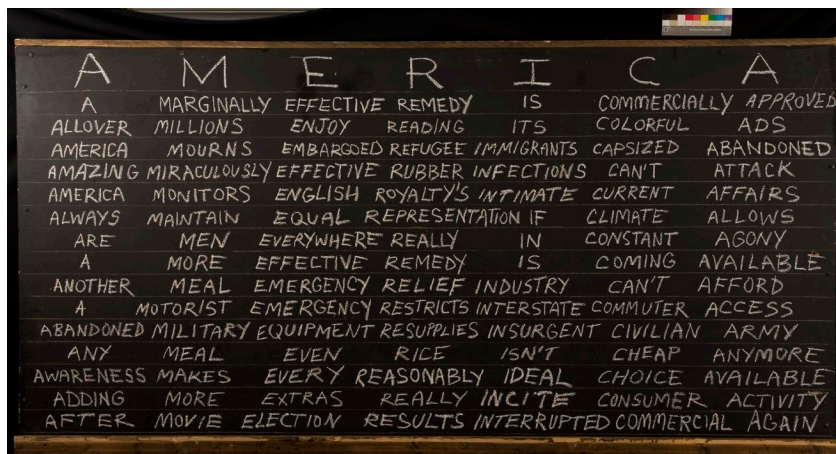 A M E R I C A
A MARGINALLY EFFECTIVE REMEDY IS COMMERCIALLY APPROVED
ALLOVER MILLIONS ENJOY READING ITS COLORFUL ADS
AMERICA MOURNS EMBARGOED REFUGEE IMMIGRANTS CAPSIZED ABANDONED
AMAZING MIRACULOUSLY EFFECTIVE RUBBER INFECTIONS CAN'T ATTACK
AMERICA MONITORS ENGLISH ROYALTY'S INTIMATE CURRENT AFFAIRS
ALWAYS MAINTAIN EQUAL REPRESENTATION IF CLIMATE ALLOWS
ARE MEN EVERYWHERE REALLY IN CONSTANT AGONY
A MORE EFFECTIVE REMEDY IS COMING AVAILABLE
ANOTHER MEAL EMERGENCY RELIEF INDUSTRY CAN'T AFFORD
A MOTORIST EMERGENCY RESTRICTS INTERSTATE COMMUTER ACCESS
ABANDONED MILITARY EQUIPMENT RESUPPLIES INSURGENT CIVILIAN ARMY
ANY MEAL EVEN RICE ISN'T CHEAP ANYMORE
AWARENESS MAKES EVERY REASONABLY IDEAL CHOICE AVAILABLE
ADDING MORE EXTRAS REALLY INCITE CONSUMER ACTIVITY
AFTER MOVIE ELECTION RESULTS INTERRUPTED COMMERCIAL AGAIN